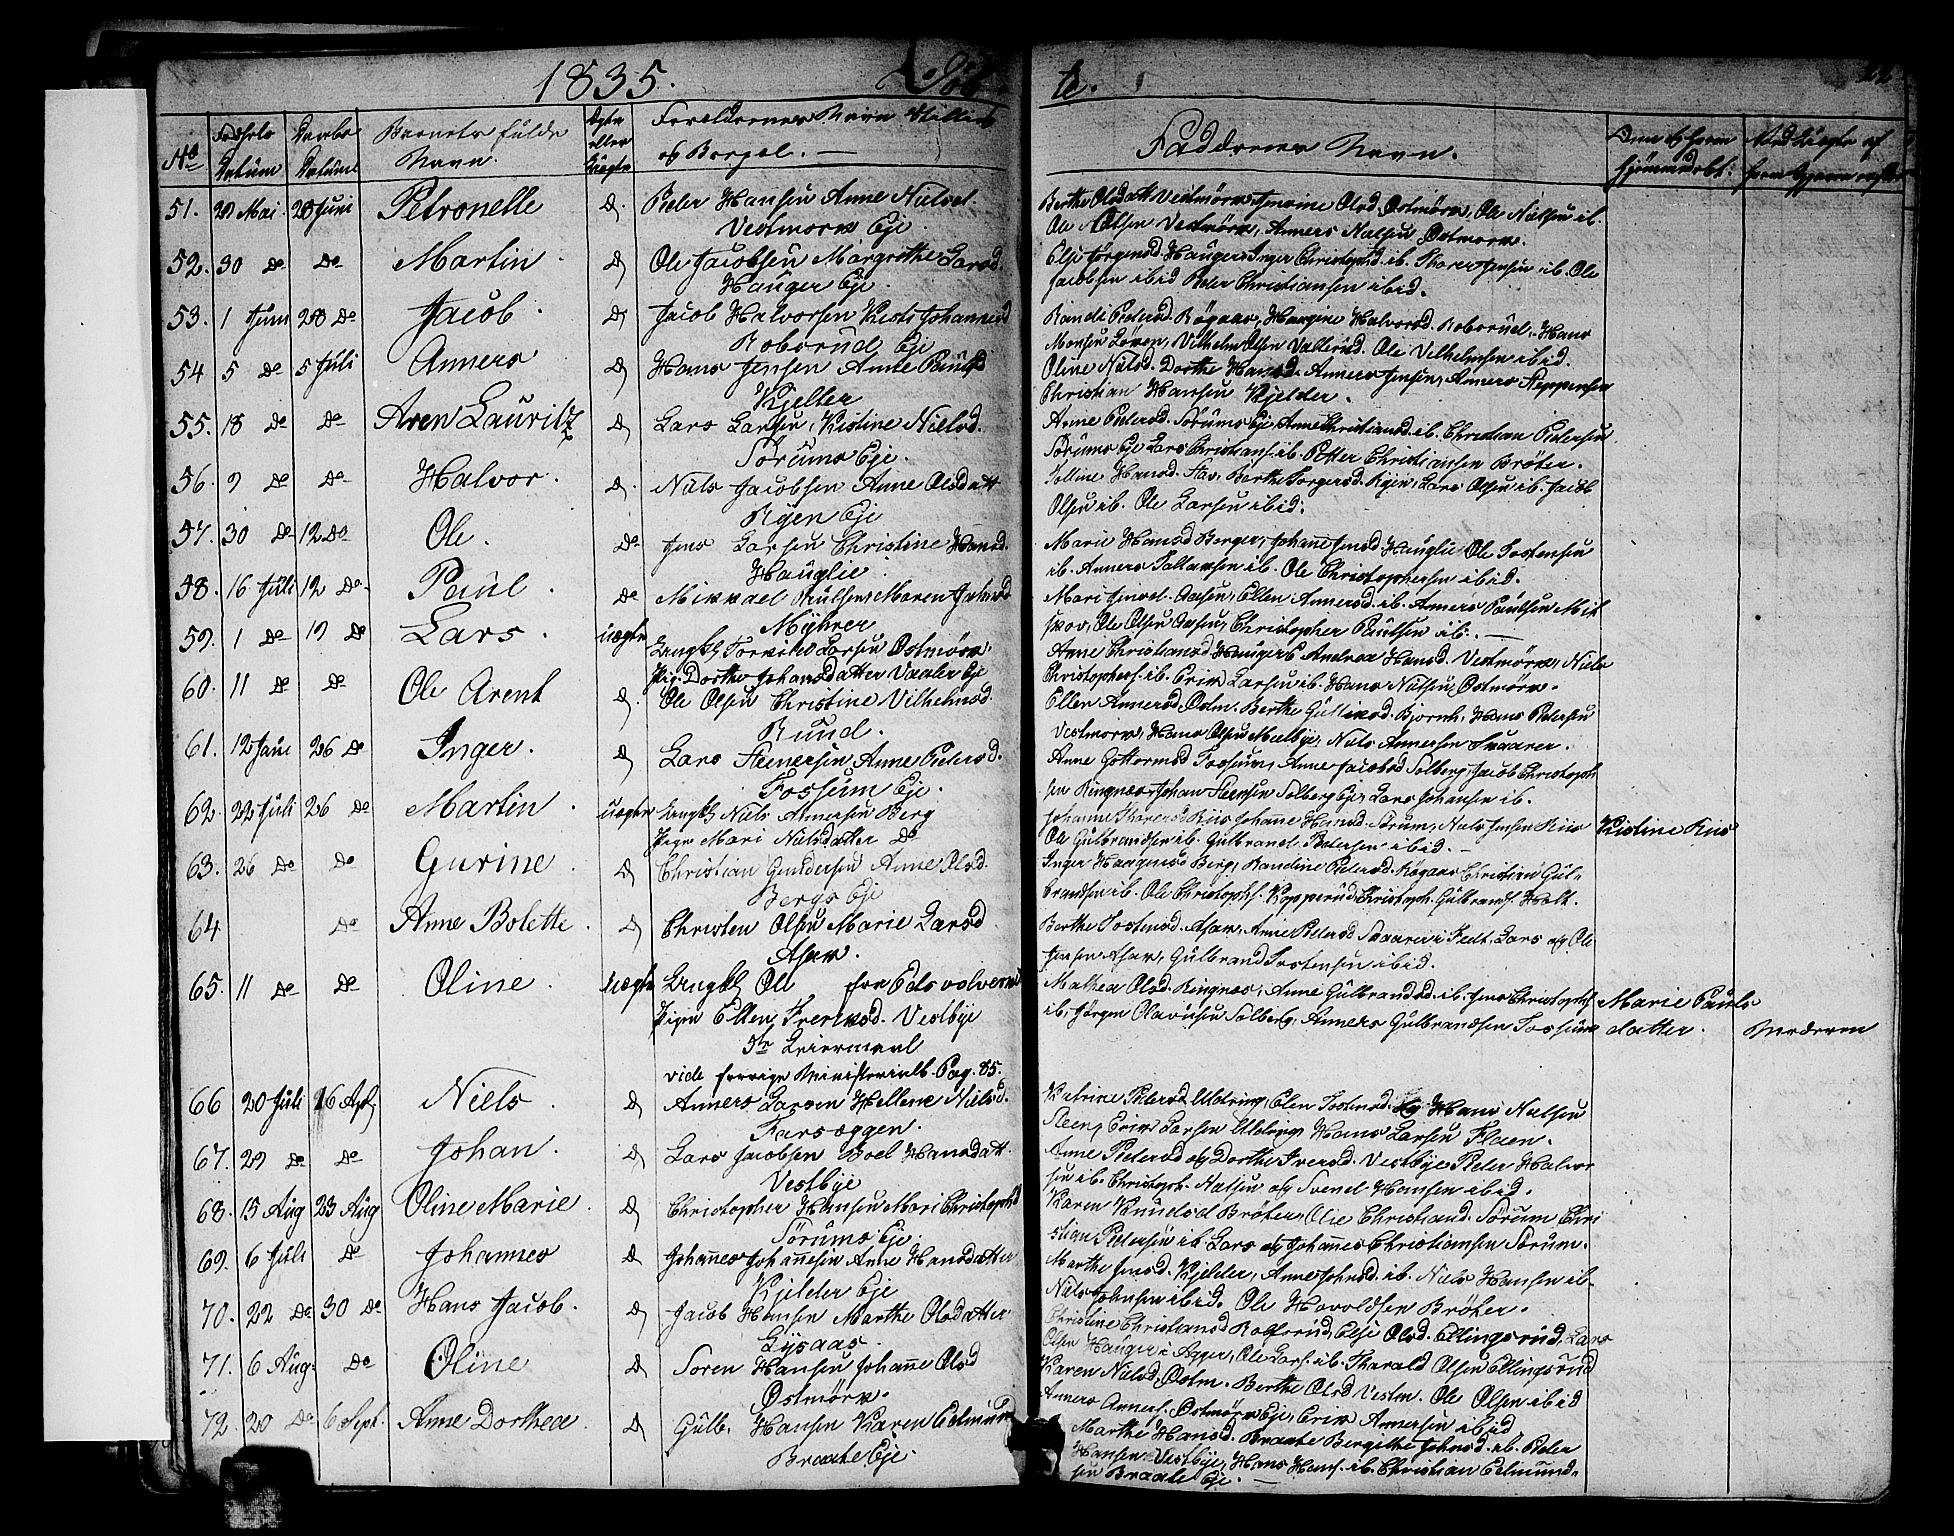 1835. Døb te.
No Fødsels Datum Daabs Datum Barnets fulde Navn. Ægte eller Uægte Foreldrenes Navn Stilling og Borgel. — Faddernes Navn. Dem af hvem hjemmedøbt: Med Kiøgte af
51. 29 Mai. 28 Juni Petronelle Do. Peter Hansen Anne Nielsd.
Vestmorck Eje.
Berthe Olsdatt Vestmörck Ostmörck, Ole Nielsen ib.
Ole Nielsen Vestmörck, Anners Nielsen Ostmorck.
52. 30 Do Do Martin. D Ole Jacobsen Margrethe Larsd.
Hauger Eje.
Else Jörgensd. Hauger Inger Christophd. ib. Thorer Jensen ib. Ole
Jacobsen ibid Peter Christiansen ibid.
53. 1 Juni 28 Do Jacob. D Jacob Halvorsen Kirsti Johannesd
Roborud Eje
Randi Pedersd. Rögaas, Haagine Halvorsd. Roborud, Hans
Monsen Löven, Vilhelm Olsen Vallerud. Ole Vilhelmsen ibid.
54 5 Do 5 Juli Anners D Hans Jensen Anne Paulsd
Kjelter
Oline Nielsd. Dorthe Hansd. Anners Jensen, Anners Steppensen
Christian Hansen Kjelder.
55. 18 Do Do Aren Lauritz D Lars Larsen, Kistine Nielsd.
Sørums Eje.
Anne Pedersd. Sörums Eje Anne Christiansd. ib. Christian Pedersen
Sörums Eje Lars Christians. ib. Petter Christiansen Bröter.
56. 9 Do Do Halvor. D. Niels Jacobsen Anne Olsdatt
Ryen Eje
Olsen ib. Ole Larsen ibid.
57. 30 Do 12 Do Ole. Do Jens Larsen Christine Hansd.
Hauglie.
Marie Hansd Berger, Johane Jensd Hauglie Ole Tostensen
ib. Anners Tollavsen ib. Ole Christophersen ibid.
58. 16 Juli 12 Do. Paul. Do Mikkael Maren
Myhrer
Ellen Annersd. ib. Anners Paulsen Mit
skov, Ole Olsen Aasen, Christopher Paulsen ib. —
59. 1 Do 19 Do Lars. uægte Ungkl Larsen Ostmörck
Pig. Dorthe Johansdatter Vaaler Eje
Anne Christiansd. Hauger Andrea Hansd. Vestmörck, Niels
Christophers. ib. Erik Larsen ib. Hans Nielsen Ostmörck.
60. 11 Do Do Ole Arent D. Ole Olsen Christine Vilhelmsd.
Rund.
Ellen Annersd. Ostm. Berthe Gulliksd. Bjornh. Hans Pedersen
Vestmorck, Hans Olsen Melbye, Niels Annersen Snaarer.
61. 12 Juni 26 Do Inger. D Lars Steenersen Anne Pedersd.
Fossum Eje.
Anne Gottormsd Fossum, Anne Jacobsd Solberg, Jacob Christoph
sen Ringnæs Johan Steensen Solberg Eje, Lars Johansen ib.
62. 22 Juli 26 Do Martin. uægte Ungkl Niels Annersen Berg
Pigen Mari Nielsdatter Do
Johanne Thoresd Riis Johane Hansd. Sörum, Niels Jensen Riis Kistine Riis
Ole Gulbrandsen ib. Gulbrand Pedersen ibid. —
63. 26 Do Do Gurine. D Christian Gundersen Anne Olsd.
Bergs Eje
Inger Haagensd Berg, Randine Pedersd. Rögaas Christian Gul-
brandsen ib. Ole Christophs. Kopperud, Christoph. Gulbrands. Holt.
64 Do Anne Bolette. D Christen Olsen Marie Larsd
Asak.
Berthe Tostensd. Asak, Anne Pedersd Snaarer i Fedt. Lars og Ole
Jensen Asak, Gulbrand Tostensen ibid.
65. 11 Do Do Oline. Uægte Ungkl Ole fra Edsvolverud
Pigen Ellen Freriksd. Vestbye
3die Leiermaal
vide forrige Ministerialb. Pag. 85.
Mathea Olsd. Ringnæs, Anne Gulbrandsd. ib. Jens Christophs. Marie Pauls
ib. Jörgen Olavesen Solberg, Anners Gulbrandsen Fossum datter. Moderen
66 20 Juli 16 Aug Niels. D Anners Larsen Hellene Nielsd.
Farseggen.
Katrine Pedersd. Uldring, Elen Tostensd. og Hans Nielsen
Steen, Erik Larsen Uldring Hans Larsen Flaen.
67. 29 Do Do Johan. D Lars Jacobsen Boel Hansdatt.
Vestbye
Anne Pedersd og Dorthe Iversd. Vestbye Peter Halvor
sen ib. Christoph. Nielsen og Svend Hansen ibid.
68. 15 Aug 23 Aug Oline Marie. D Christopher Hansen Mari Christophd
Sörums Eje.
Karen Knudsd Bröter, Olie Christiansd. Sörum Chri
stian Pedersen ib. Lars og Johannes Christiansen Sorum.
69. 6 Juli Do Johannes D Johannes Johannesen Anne Hansdatter
Kjelder Eje
Marthe Jensd. Kjelder, Anne Johnsd. ib. Niels Hansen ib.
Niels Johnsen ibid. Ole Havoldsen Bröter.
70. 22 Do 30 Do Hans Jacob. D Jacob Hansen Marthe Olsdatter
Lysaas.
Christine Christiansd Rolfsrud, Else Olsd. Ellingsrud. Lars
Olsen Hauger i Agger, Ole Lars. ib. Tharald Olsen Ellingsrud
71. 6 Aug. Do Oline D Soren Hansen Johanne Olsd
Ostmörck.
Karen Nielsd. Ostm. Berthe Olsd Vestm. Ole Olsen ibid
Anners Anners. Ostmörck Eje, Erik Annersen ibid
72. 20 Do 6 Sept. Anne Dorthea. D Gulb. Hansen Karen Edmunds
Braate Eje.
Marthe Hansd. Braate Birgithe Johnsd. ib. Peder
Hansen Vestbye, Hans Hans. ib. Christian Edmund-
sen Braate Eje. —